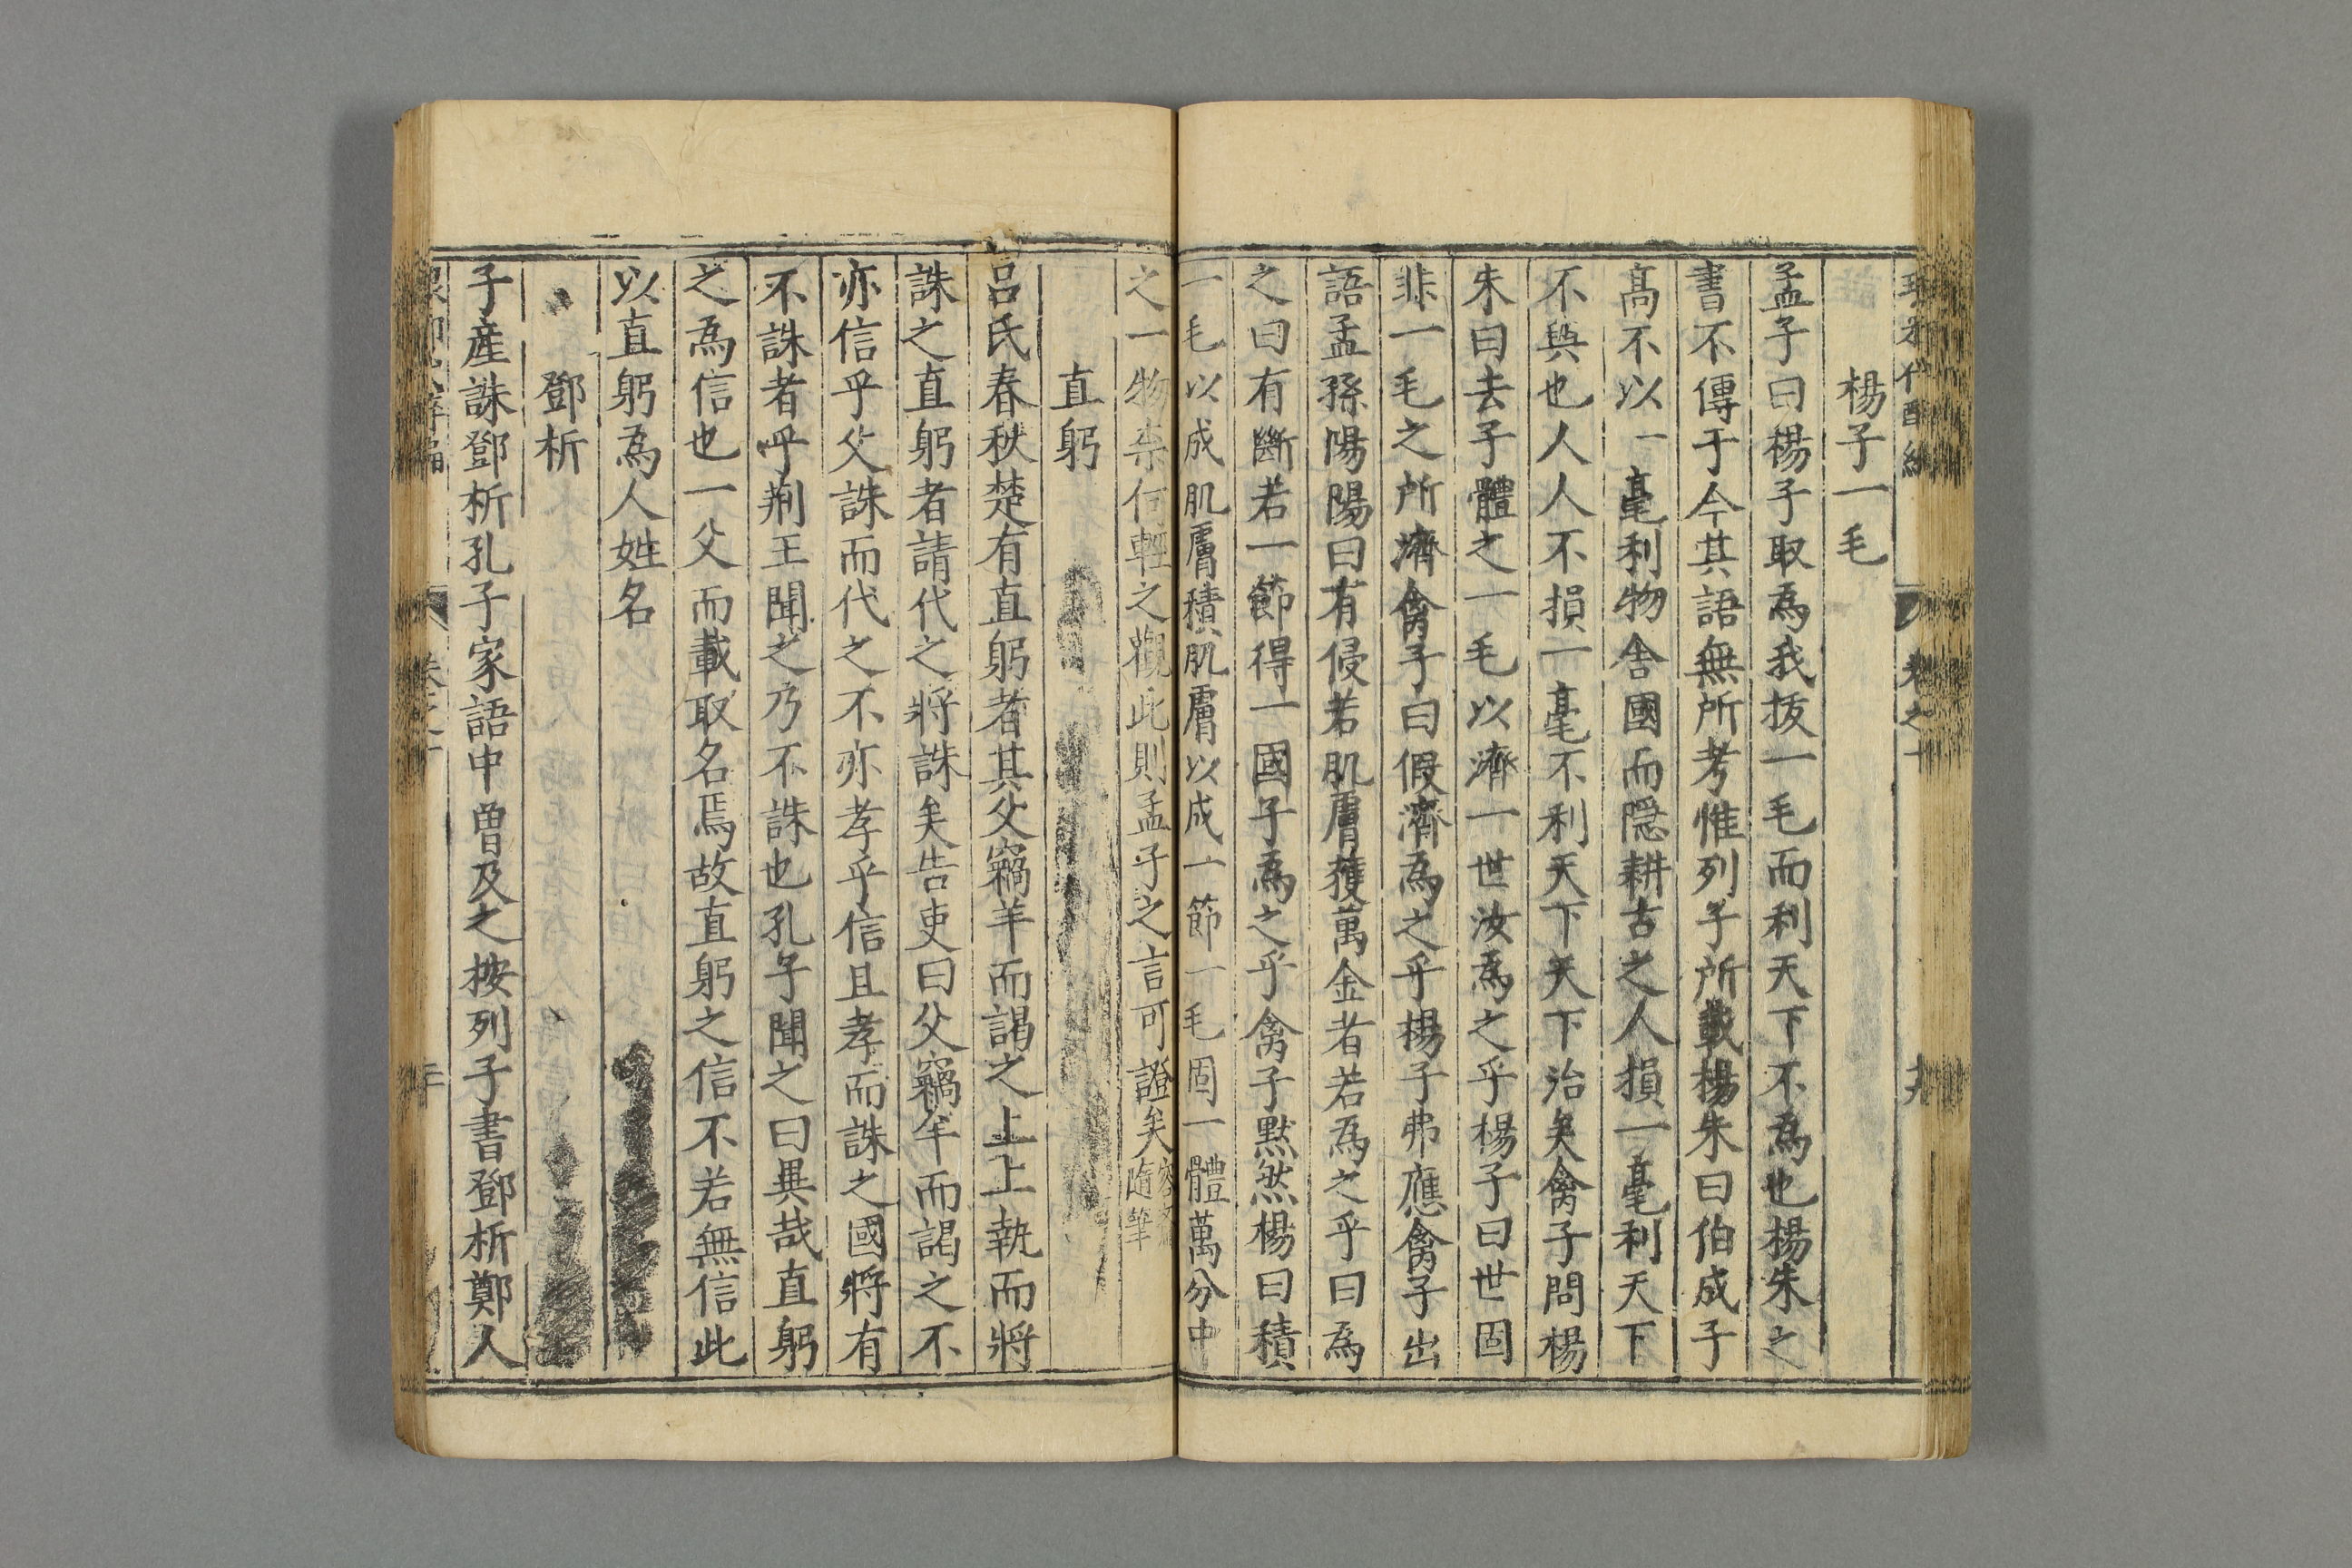 琅邪代醉編 卷之十 十九
註
楊子一毛
孟子曰楊子取為我拔一毛而利天下不為也楊朱之
書不傳于今其語無所考惟列子所載楊朱曰伯成子
高不以一毫利物舎國而隠耕古之人損一毫利天下
不與也人人不損一毫不利天下天下治矣禽子問楊
朱曰去子體之一毛以濟一世汝為之乎楊子曰世固
非一毛之所濟禽子曰假濟為之乎楊子弗應禽子出
語孟孫陽陽曰有侵若肌膚獲萬金者若為之乎曰為
之曰有斷若一節得一國子為之乎禽子黙然楊曰積
一毛以成肌膚積肌膚以成一節一毛固一體萬分中
之一物柰何輕之觀此則孟子之言可證矣容齋隨筆
直躬
吕氏春秋楚有直躬者其父竊羊而謁之上上執而將
誅之直躬者請代之將誅矣告吏曰父竊羊而謁之不
亦信乎父誅而代之不亦孝乎信且孝而誅之國將有
不誅者乎荆王聞之乃不誅也孔子聞之曰異哉直躬
之為信也一父而載取名焉故直躬之信不若無信此
以直躬為人姓名
鄧析
子產誅鄧析孔子家語中曾及之按列子書鄧析鄭人
卷之十